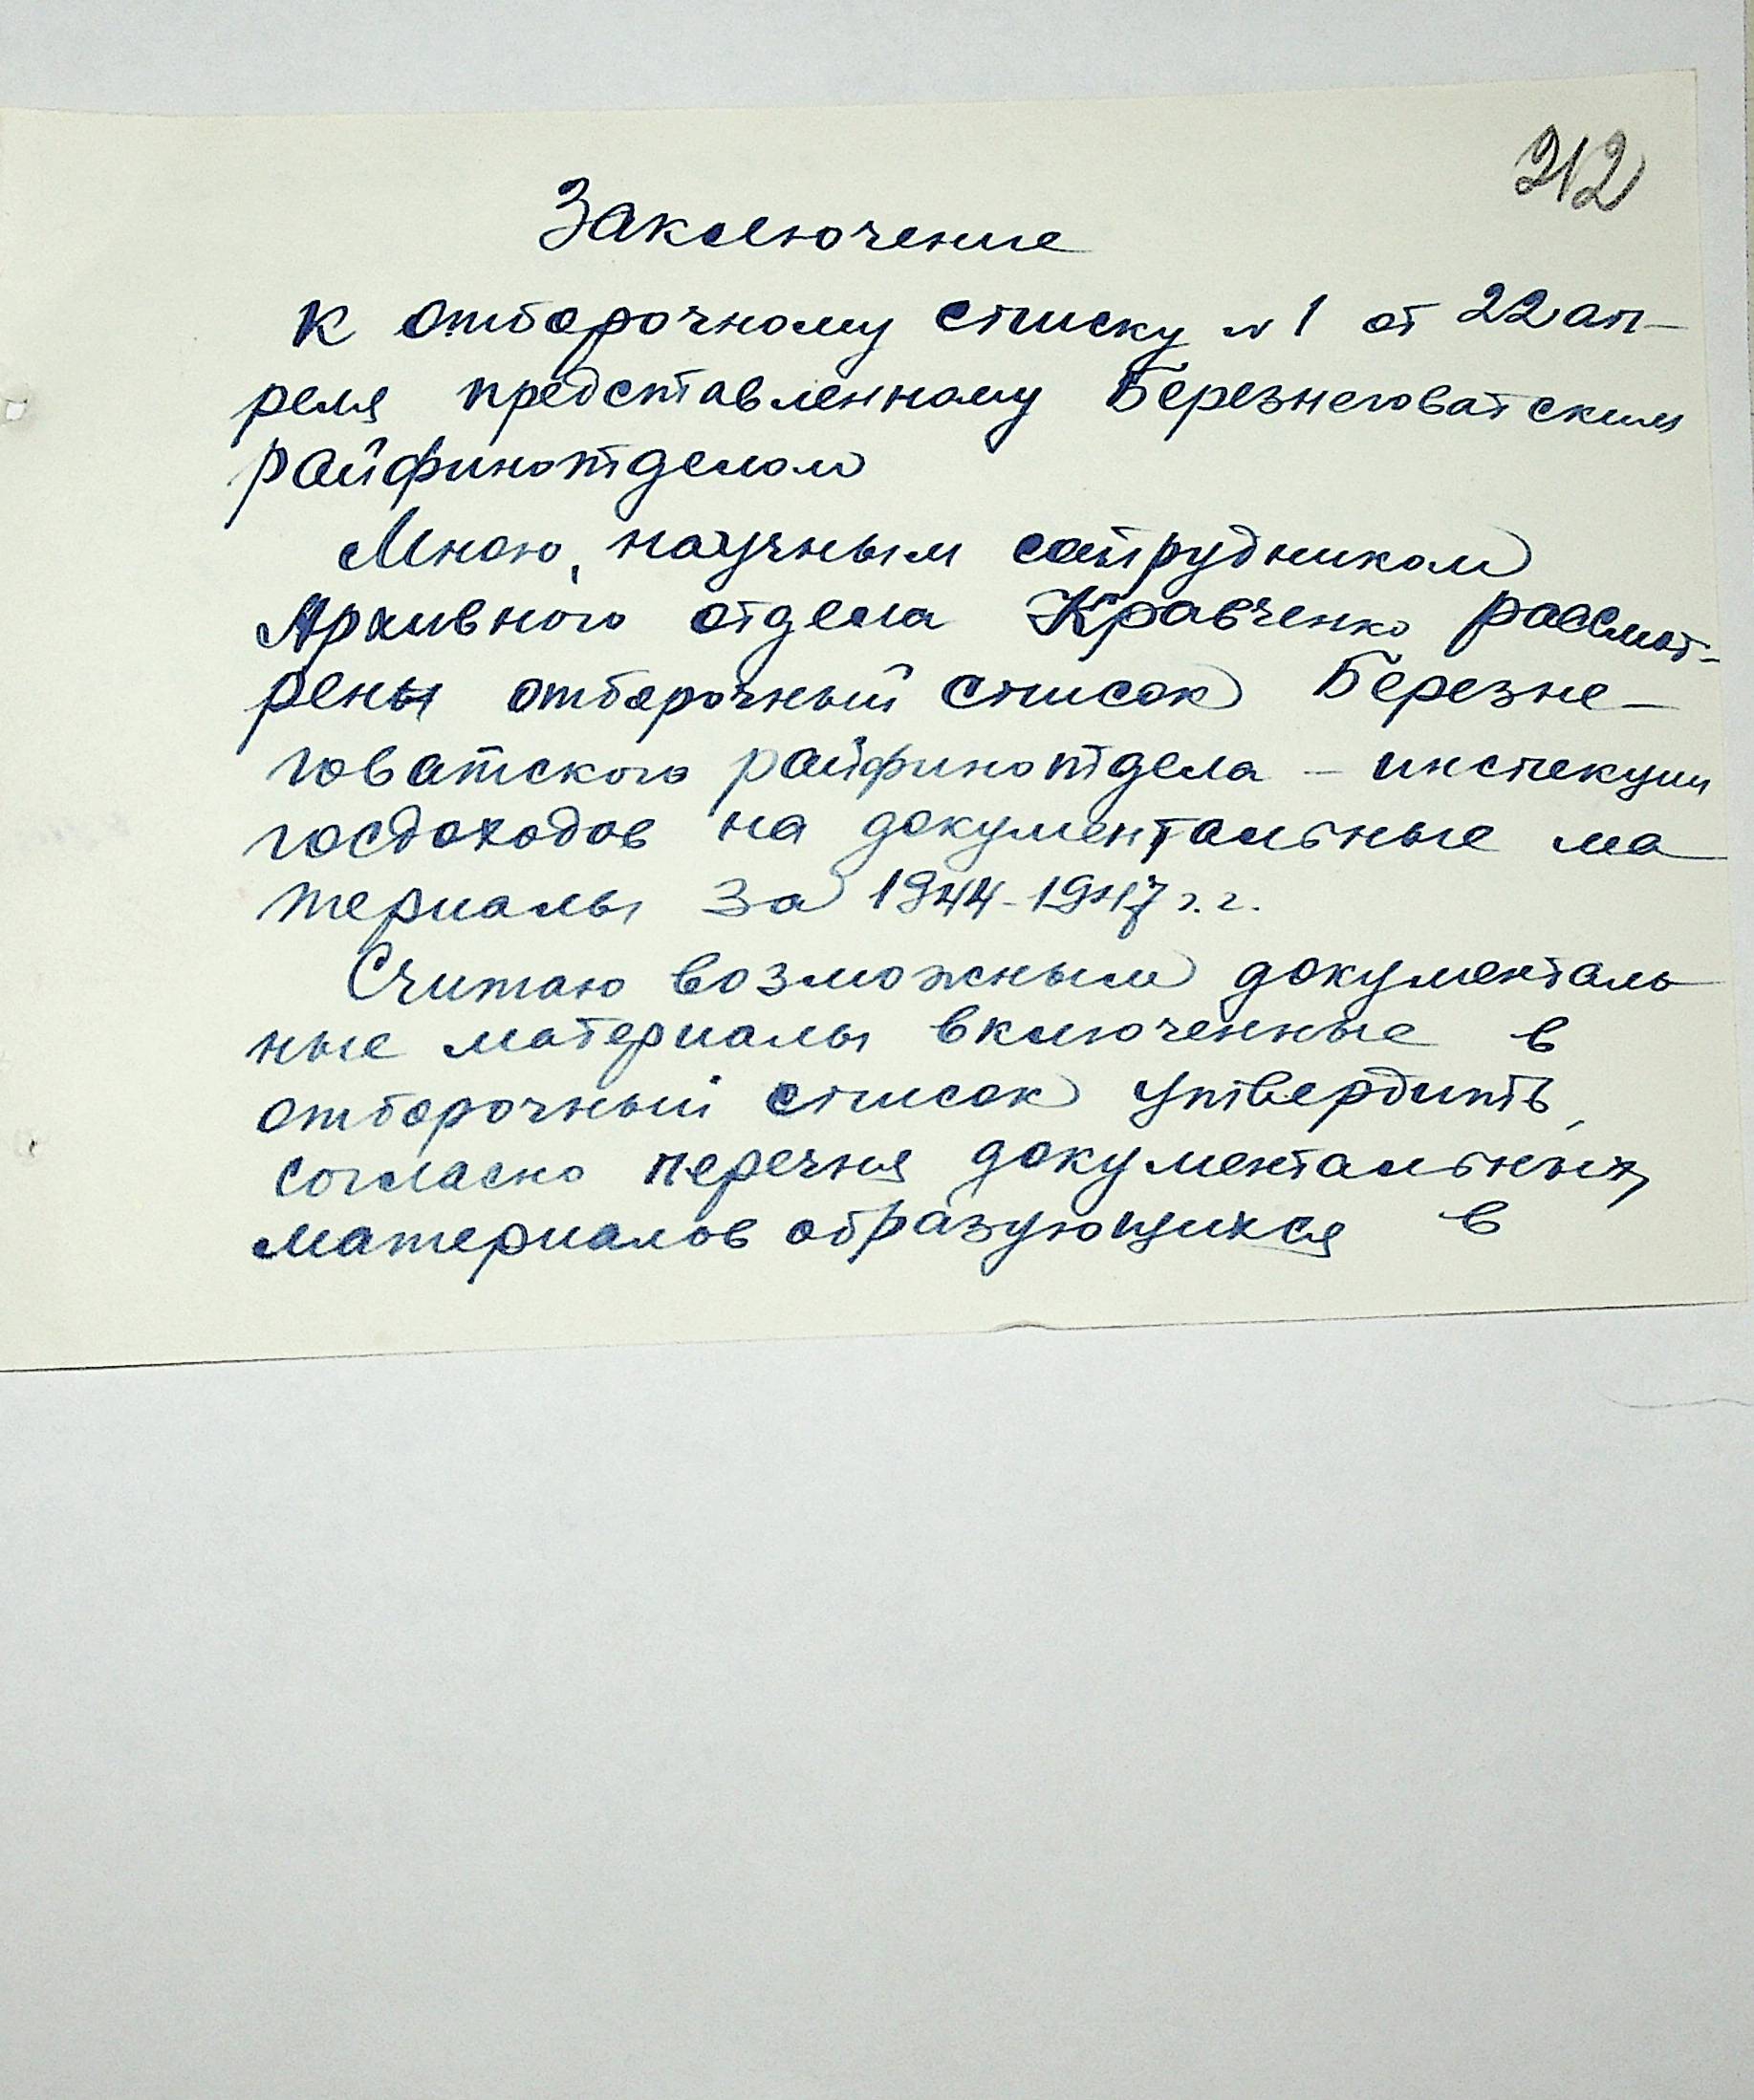 212
Заключение
к отборочному списку № 1 от 22 ап-
реля представленному Березнеговатским
райфинотделом
Мною, научным сотрудником
Архивного отдела Кравченко рассмот-
рены отборочный список Березне-
говатского райфинотдела - инспекции
госдоходов на документальные ма
териалы за 1944-1947 г.г.
Считаю возможным документаль
ные материалы включенные в
отборочный список утвердить,
согласно перечня документальных
материалов образующихся в